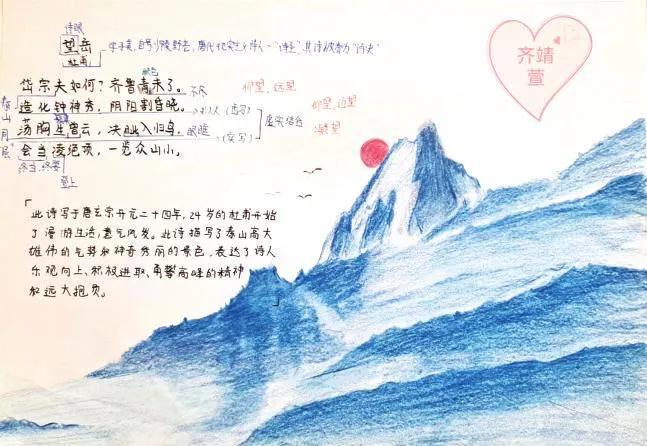 诗眼
望岳
杜甫
字子美，自号少陵野老，唐代现实主义诗人，"诗圣"，其诗被称为"诗史"
岱宗夫如何？齐鲁青未了。 不尽 仰望，远望
造化钟神秀，阴阳割昏晓。 拟人（虚写） 仰望，近望
虚实结合
荡胸生曾云，决眦入归鸟。 眼眶 （实写） 凝望
会当凌绝顶，一览众山小。
泰山
终当，终要
登上
此诗写于唐玄宗开元二十四年，24岁的杜甫开始
了漫游生活，意气风发。此诗描写了泰山高大
雄伟的气势和神奇秀丽的景色，表达了诗人
乐观向上、积极进取、勇攀高峰的精神
和远大抱负。
齐靖
萱